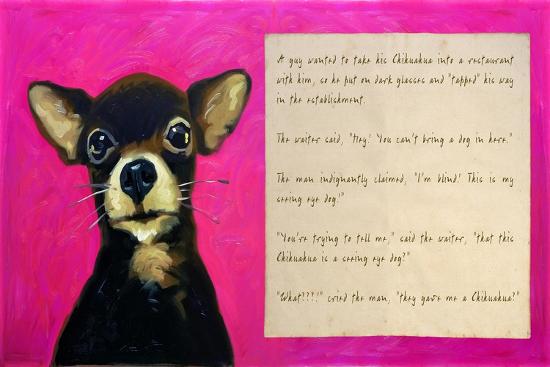 A guy wanted to take his Chihuahua into a restaurant
with him, so he put on dark glasses and "tapped" his way
in the establishment.
The waiter said, "Hey! You can't bring a dog in here."
The man indignantly claimed, "I'm blind! This is my
seeing eye dog!"
"You're trying to tell me," said the waiter, "that this
Chihuahua is a seeing eye dog?"
"What???!" cried the man, "they gave me a Chihuahua?"